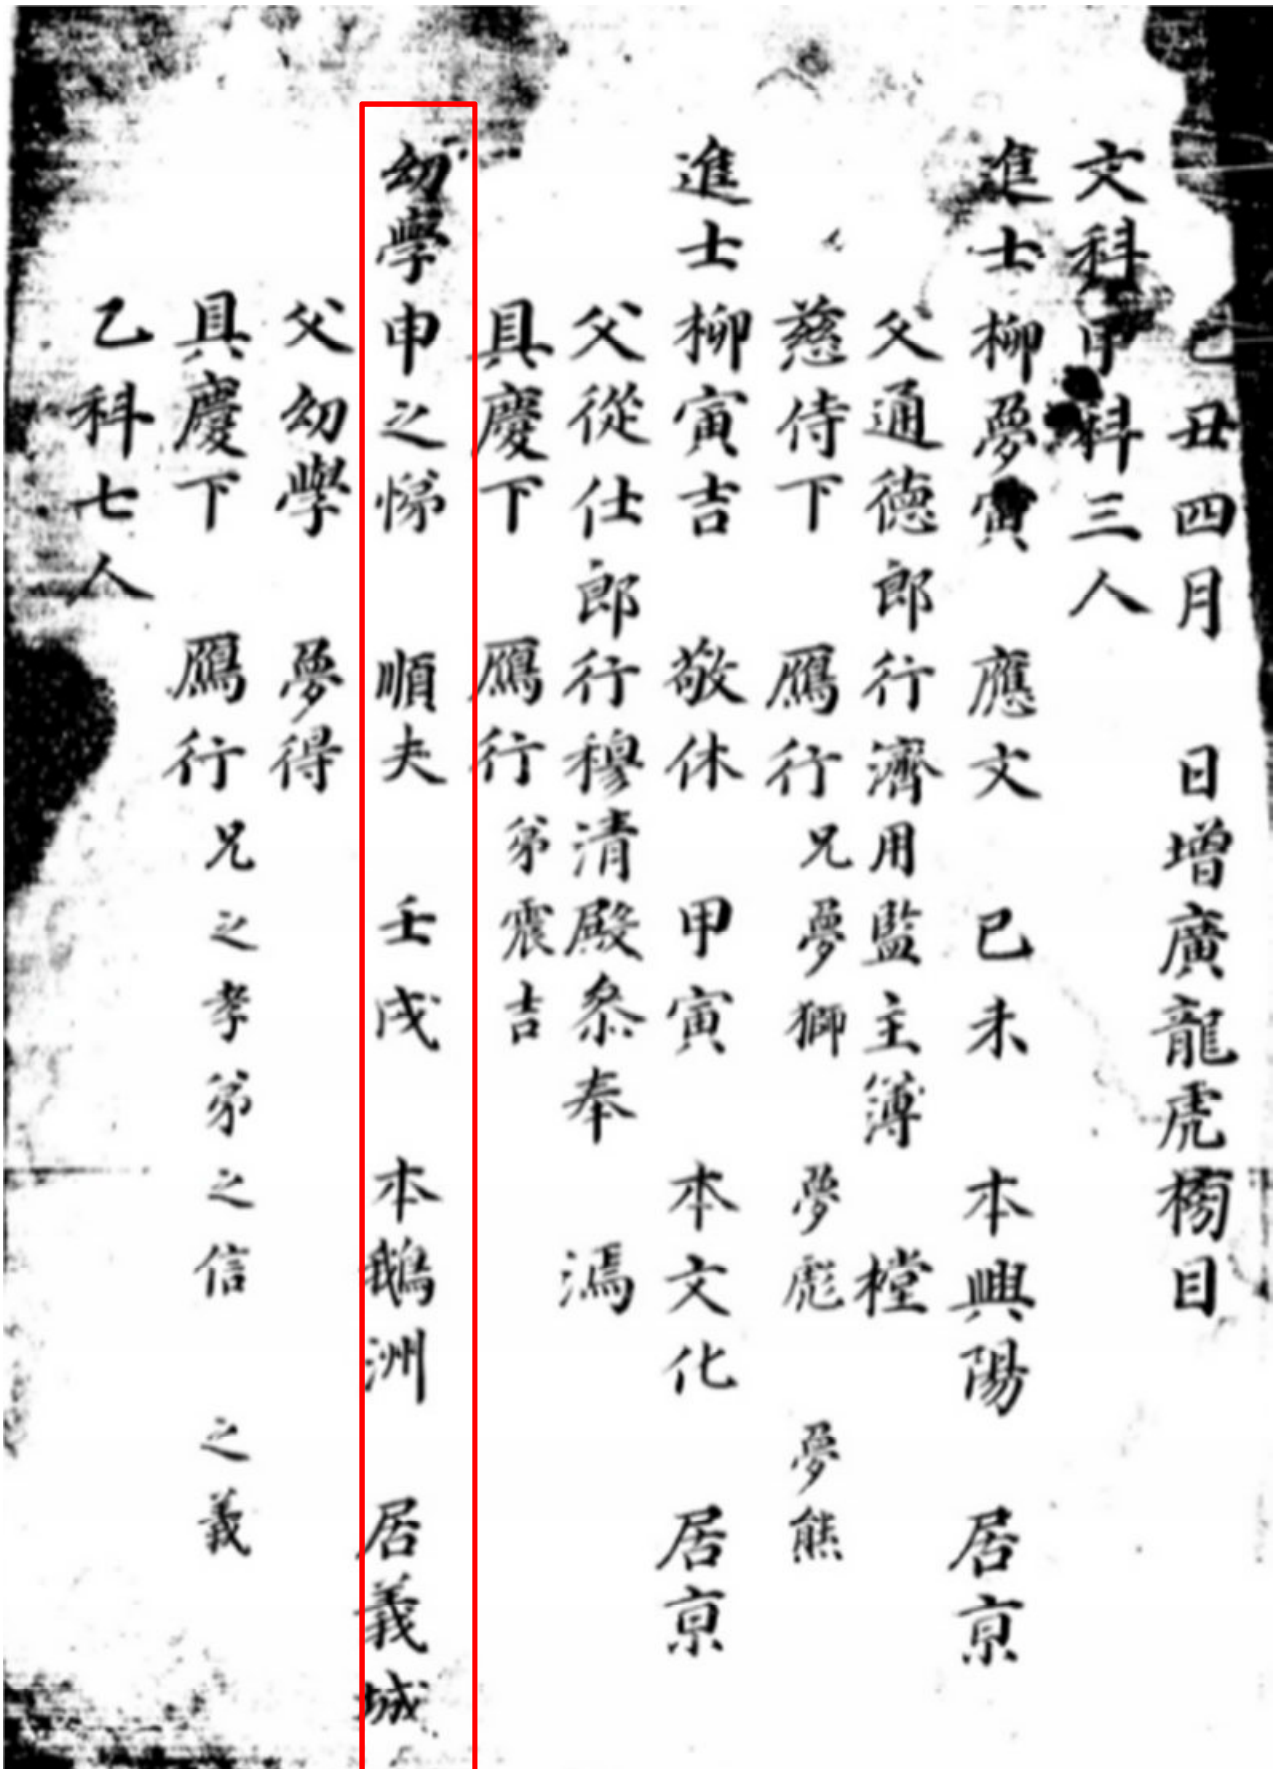 己丑四月 日增廣龍虎榜目
文科甲科三人
進士柳夢寅 應文 已未 本興陽 居京
父通德郎行濟用監主簿 樘
慈侍下 鴈行兄夢獅 夢彪 夢熊
進士柳寅吉 敬休 甲寅 本文化 居京
父從仕郎行穆清殿叅奉 漹
具慶下 鴈行弟震吉
幼學申之悌 順夫 壬戌 本鵝洲 居義城
父幼學 夢得
具慶下 鴈行兄之孝弟之信 之義
乙科七人